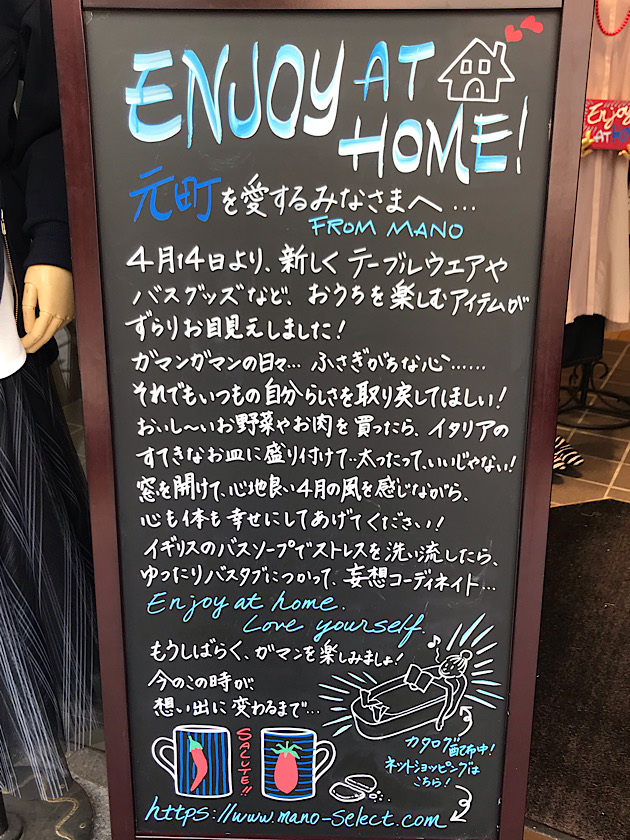 ENJOY AT
HOME!
元町を愛するみなさまへ…
FROM MANO
4月14日より、新しくテーブルウエアや
バスグッズなど、おうちを楽しむアイテムが
ずらりお目見えしました！
ガマンガマンの日々… ふさぎがちな心……
それでもいつもの自分らしさを取り戻してほしい！
おいし〜いお野菜やお肉を買ったら、イタリアの
すてきなお皿に盛り付けて…太ったって、いいじゃない！
窓を開けて、心地良い4月の風を感じながら、
心も体も幸せにしてあげてください！
イギリスのバスソープでストレスを洗い流したら、
ゆったりバスタブにつかって、妄想コーディネイト…
Enjoy at home.
Love yourself.
もうしばらく、ガマンを楽しみましょ！
今のこの時が、
想い出に変わるまで…
SALUTE!!
カタログ配布中！
ネットショッピングは
こちら！
https://www.mano-select.com
Enjoy
AT